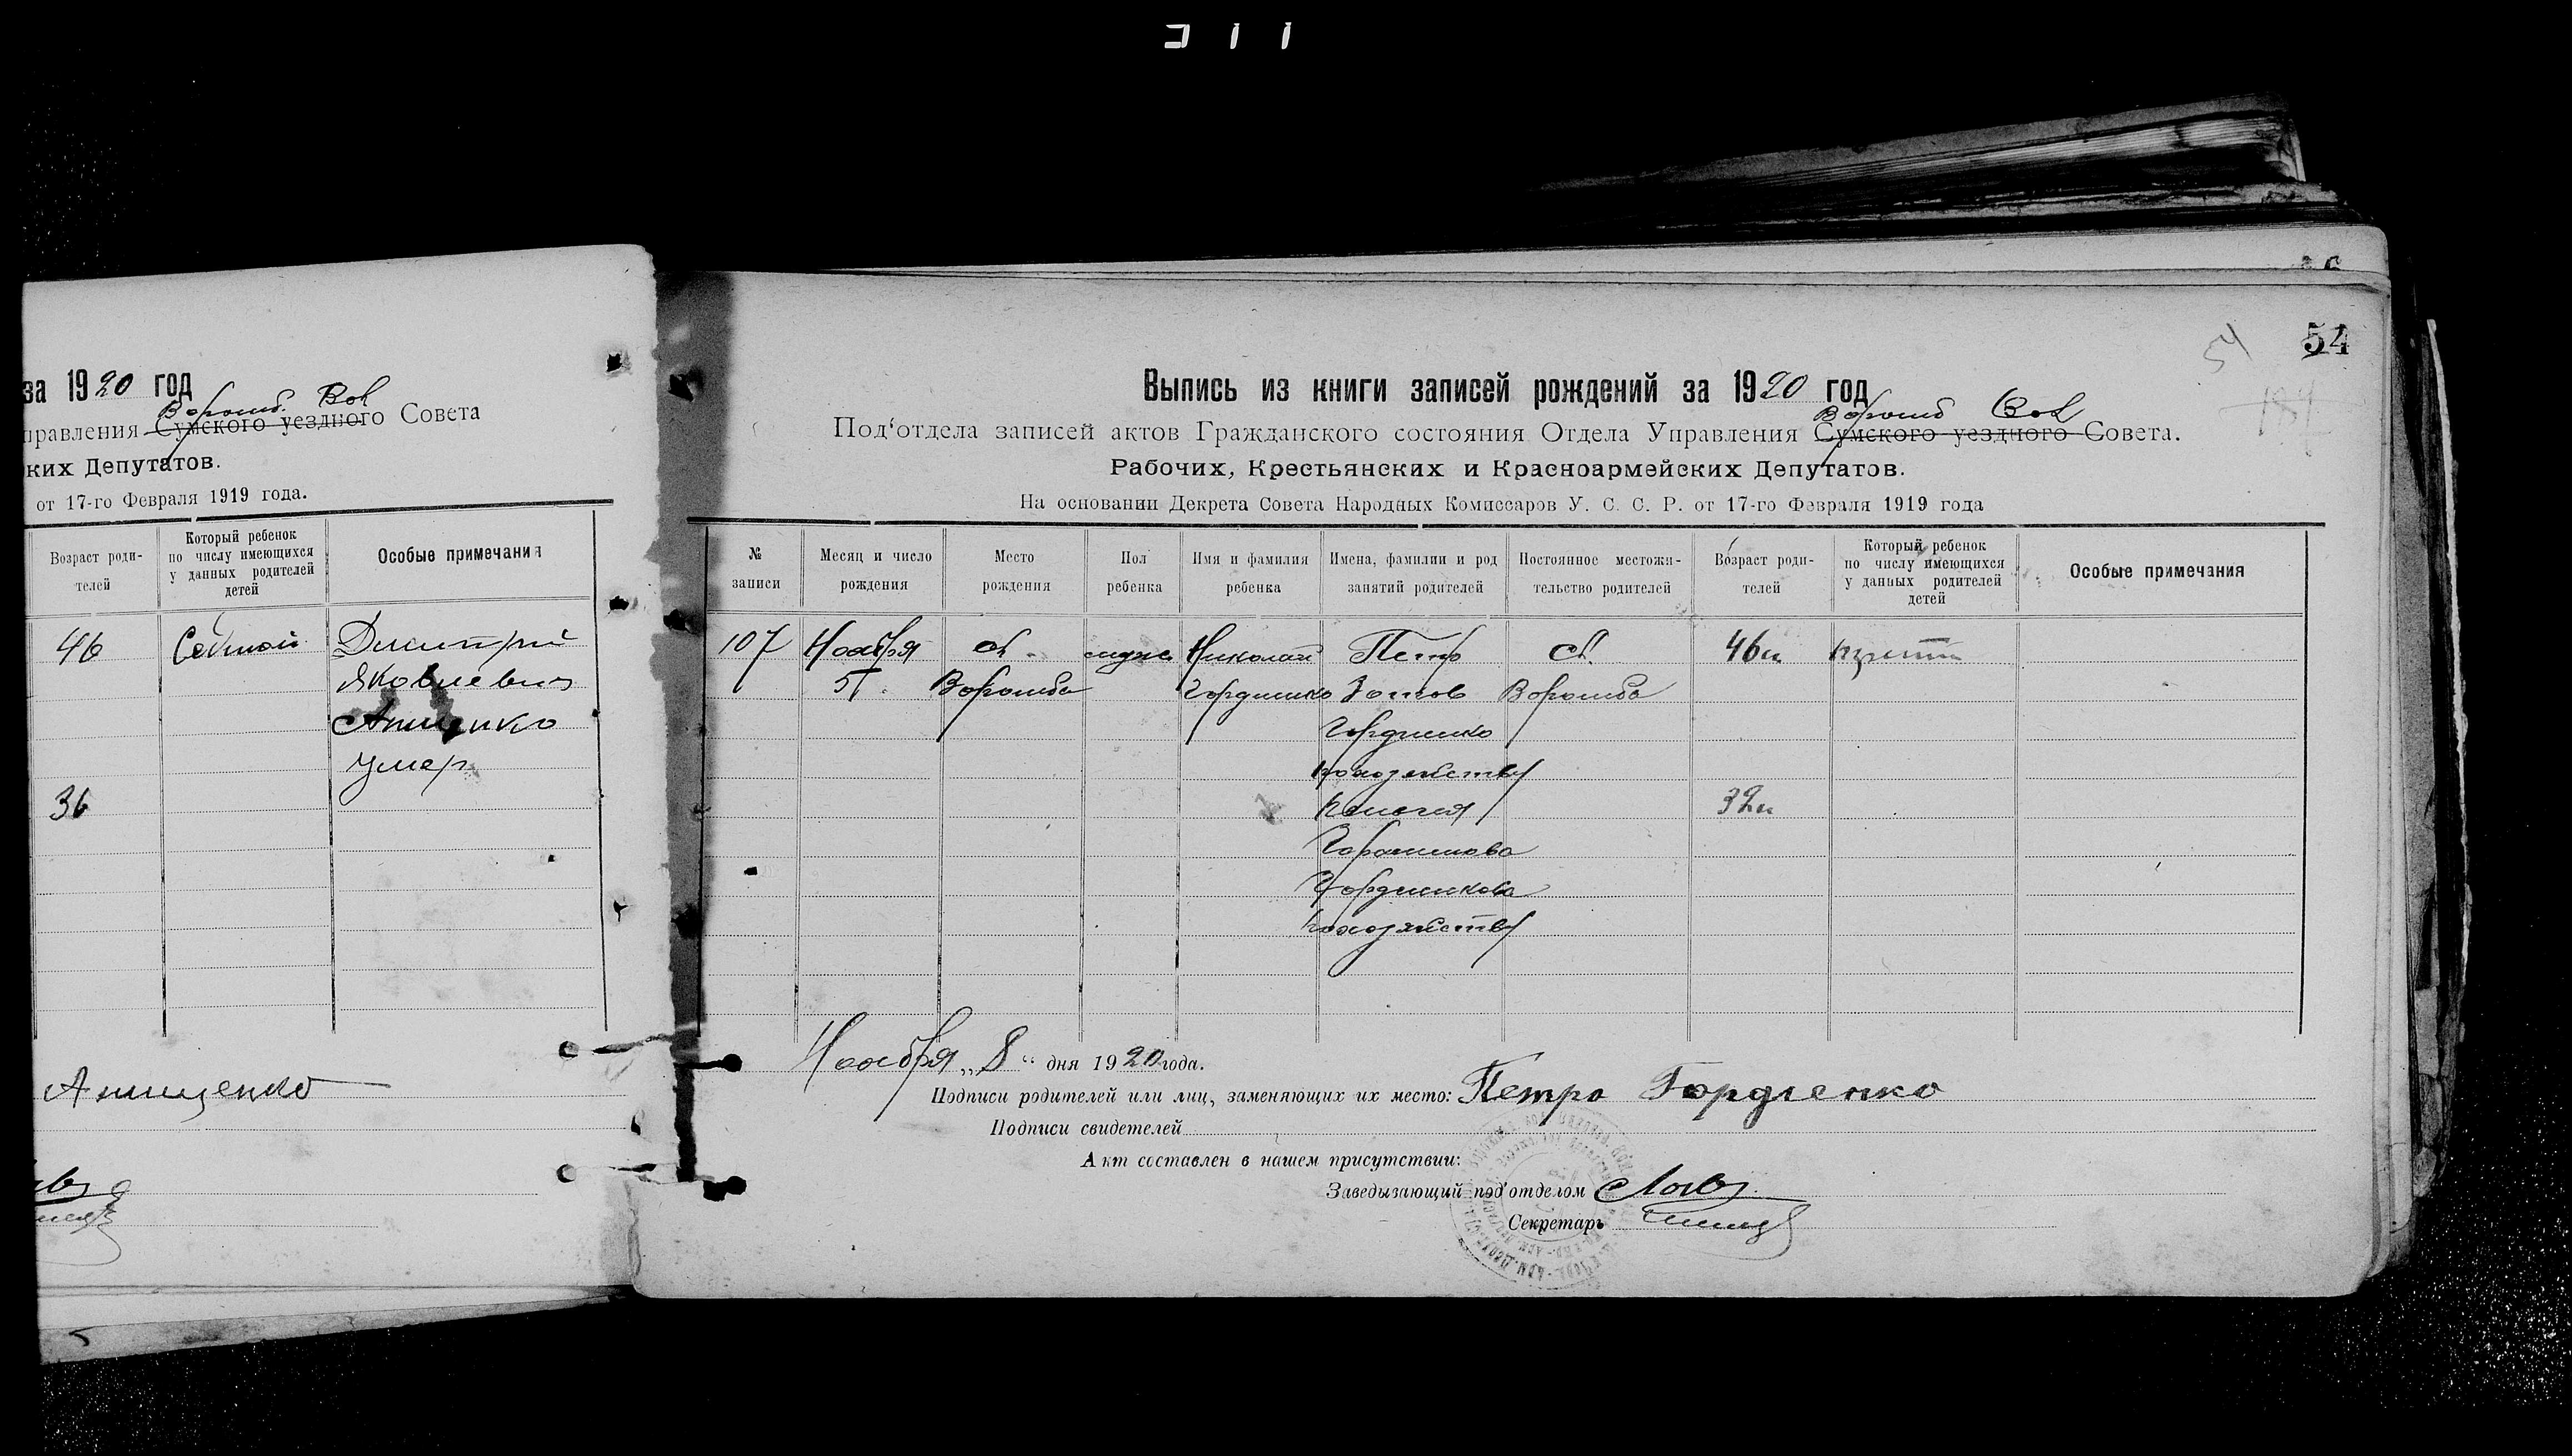 за 1920 год
Ворожб. Вол
правления Сумского уездного Совета
ких Депутатов.
от 17-го Февраля 1919 года.
Возраст роди-
телей
Который ребенок
по числу имеющихся
у данных родителей
детей
Особые примечания
46 Седмой Дмитрий
Яковлевич
Анищенко
умер
36
Анищенко
54
54
Выпись из книги записей рождений за 1920 год
Ворожб Вол
Под'отдела записей актов Гражданского состояния Отдела Управления Сумского уездного Совета.
Рабочих, Крестьянских и Красноармейских Депутатов.
На основании Декрета Совета Народных Комиссаров У. С. С. Р. от 17-го Февраля 1919 года
№
записи
Месяц и число
рождения
Место
рождения
Пол
ребенка
Имя и фамилия
ребенка
Имена, фамилии и род
занятий родителей
Постоянное местожи-
тельство родителей
Возраст роди-
телей
Который ребенок
по числу имеющихся
у данных родителей
детей
Особые примечания
107 Ноября сл. муж. Николай Петр сл. 46л
5 Ворожба Гордиенко Зотов Ворожба
Гордиенко
хлозяйству
32л
Гордиенкова
Ноября „8“ дня 1920 года.
Подписи родителей или лиц, заменяющих их место: Петро Гордіенко
Подписи свидетелей
Акт составлен в нашем присутствии:
Заведывающий под'отделом
Секретарь